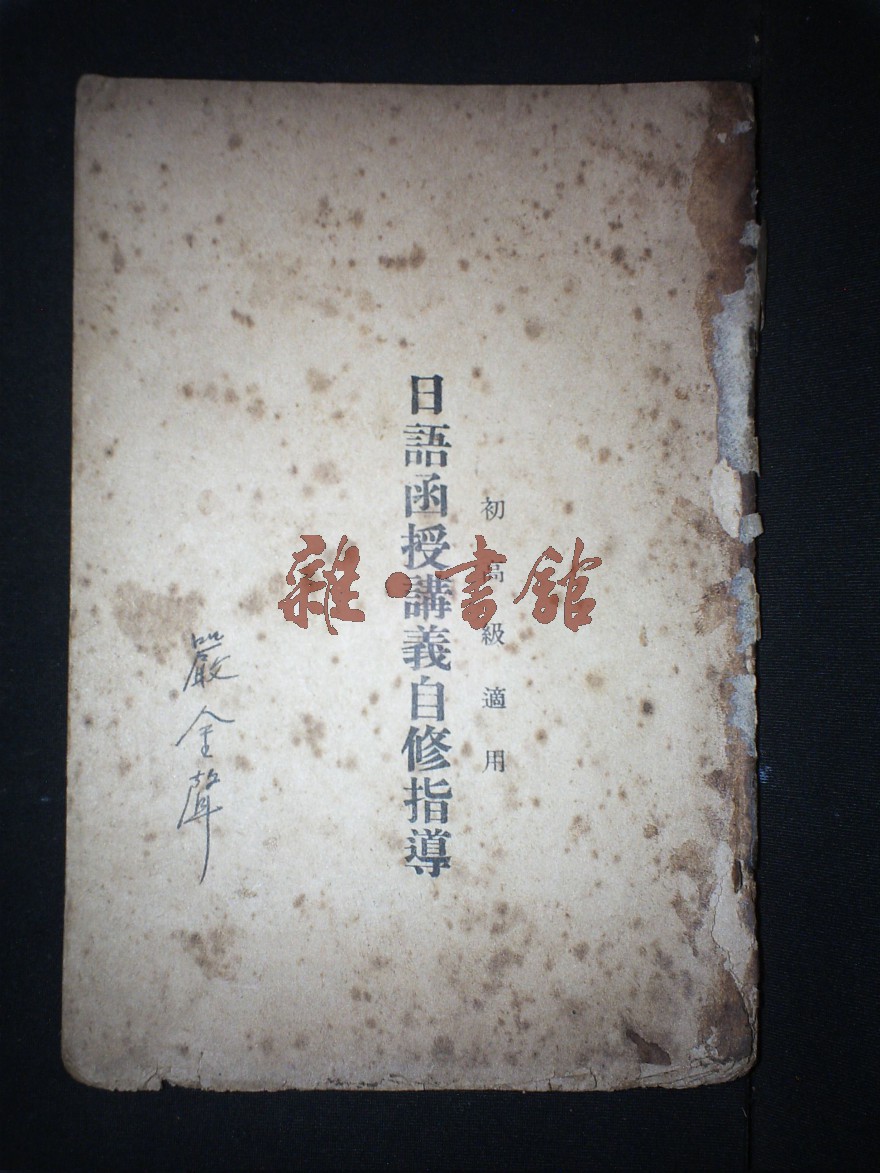 初高級適用
日語函授講義自修指導
嚴金聲
雜·書館